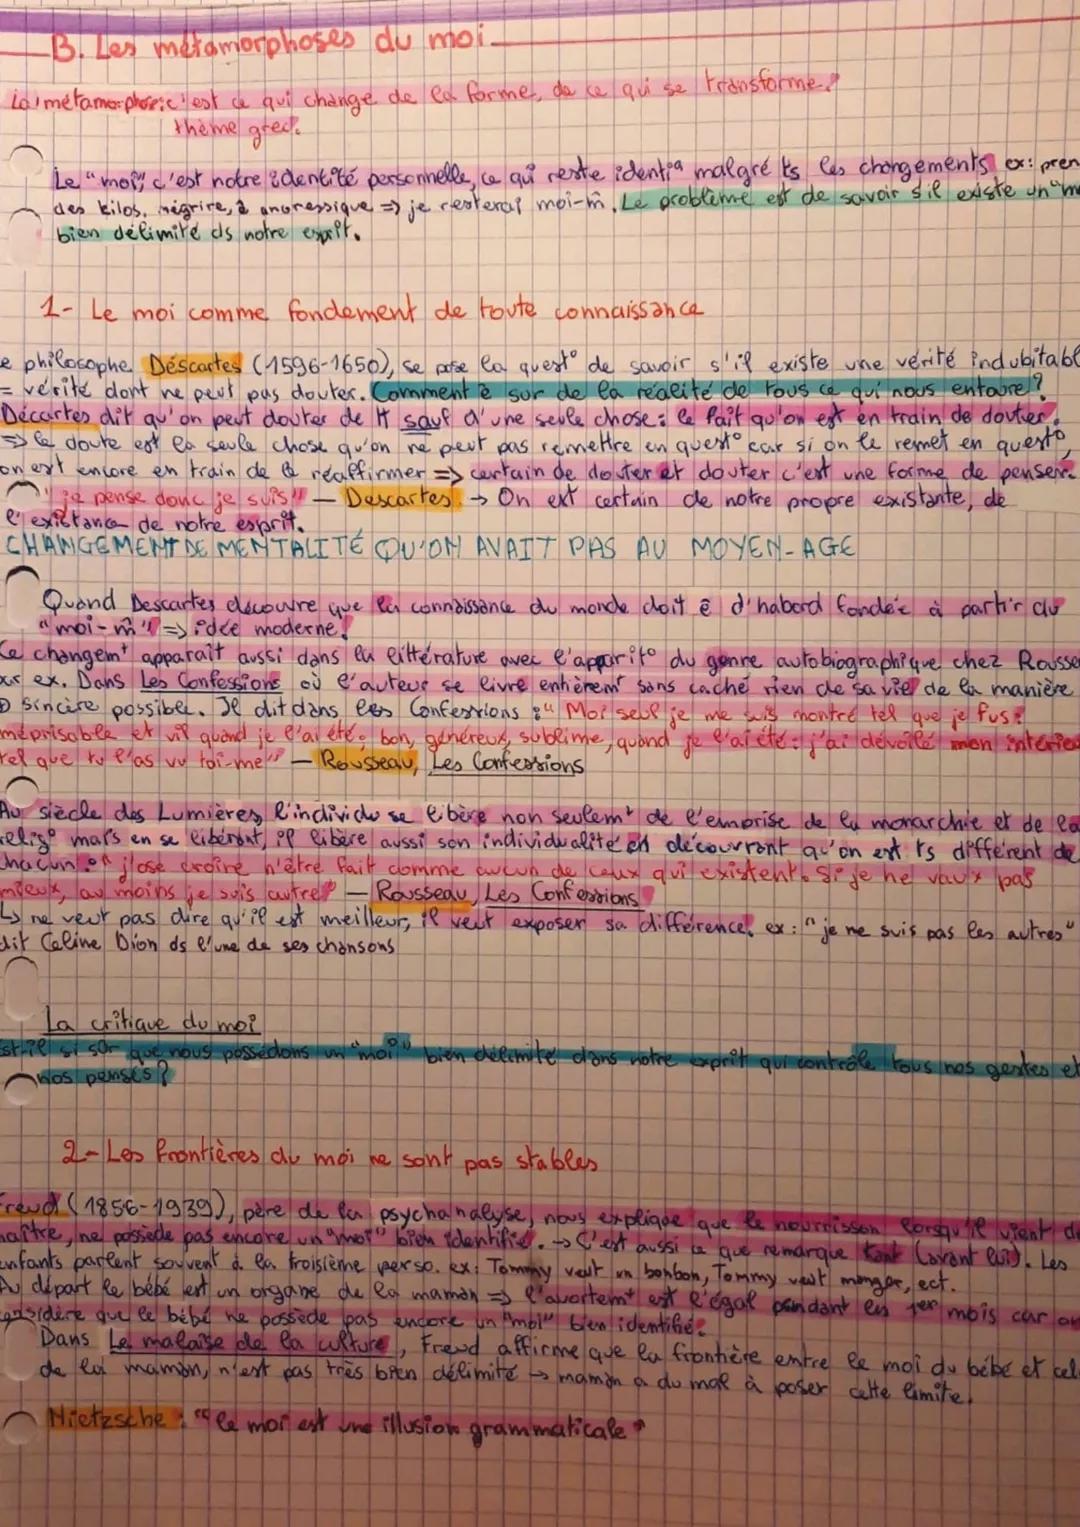 B. Les métamorphoses du moi
La métamorphose c'est ce qui change de la forme, de ce qui se transforme.
thème grec.
Le "moi", c'est notre identité personnelle, ce qui reste identiq malgré ts les changements ex: pren
des kilos, mégrire, ê anoressique => je resterai moi-m̂. Le problème est de savoir s'il existe un "m
bien délimité ds notre esprit.
1- Le moi comme fondement de toute connaissance
e philosophe Déscartes (1596-1650), se pose la quest° de savoir s'il existe une vérité indubitabl
= vérité dont ne peut pas douter. Comment ê sur de la réalité de tous ce qui nous entoure?
Déccartes dit qu'on peut douter de tt sauf d'une seule chose: le fait qu'on est en train de douter.
=> le doute est la seule chose qu'on ne peut pas remettre en quest° car si on le remet en quest°,
on est encore en train de le réaffirmer => certain de douter et douter c'est une forme de penser.
"je pense donc je suis" — Descartes → On est certain de notre propre existante, de
l'existance de notre esprit.
CHANGEMENT DE MENTALITÉ QU'ON AVAIT PAS AU MOYEN-AGE
Quand Descartes découvre que la connaissance du monde doit ê d'habord fondée à partir du
"moi-m̂" => idée moderne.
Ce changemt apparaît aussi dans la littérature avec l'apparit° du genre autobiographique chez Rousse
par ex. Dans Les Confessions où l'auteur se livre entièremt sans caché rien de sa vie de la manière
sincère possible. Il dit dans les Confessions : "Moi seul je me suis montré tel que je fus:
méprisable et vil quand je l'ai été, bon, généreux, sublime, quand je l'ai été: j'ai dévoilé mon intérieu
tel que tu l'as vu toi-me" — Rousseau, Les Confessions
Au siècle des Lumières, l'individu se libère non seulemt de l'emprise de la monarchie et de la
relig° mais en se libérant, il libère aussi son individualité en découvrant qu'on est ts différent de
chacun: "j'ose croire n'être fait comme aucun de ceux qui existent. Si je ne vaux pas
mieux, au moins je suis autre" — Rousseau, Les Confessions
↳ ne veut pas dire qu'il est meilleur, il veut exposer sa différence. ex: "je ne suis pas les autres"
dit Celine Dion ds l'une de ses chansons
La critique du moi
Est-il si sûr que nous possédons un "moi" bien délimité dans notre esprit qui contrôle tous nos gestes et
nos pensés?
2- Les frontières du moi ne sont pas stables
Freud (1856-1939), père de la psychanalyse, nous explique que le nourrisson lorsqu'il vient de
naître, ne possède pas encore un "moi" bien identifié. → C'est aussi ce que remarque Kant (avant lui). Les
enfants parlent souvent à la troisième perso. ex: Tommy veut un bonbon, Tommy veut manger, ect.
Au départ le bébé est un organe de la maman => l'avortemt est l'égal pendant les 1er mois car on
considère que le bébé ne possède pas encore un "moi" bien identifié.
Dans Le malaise de la culture, Freud affirme que la frontière entre le moi du bébé et cel
de la maman, n'est pas très bien délimité → maman a du mal à poser cette limite.
Nietzsche: "le moi est une illusion grammaticale"